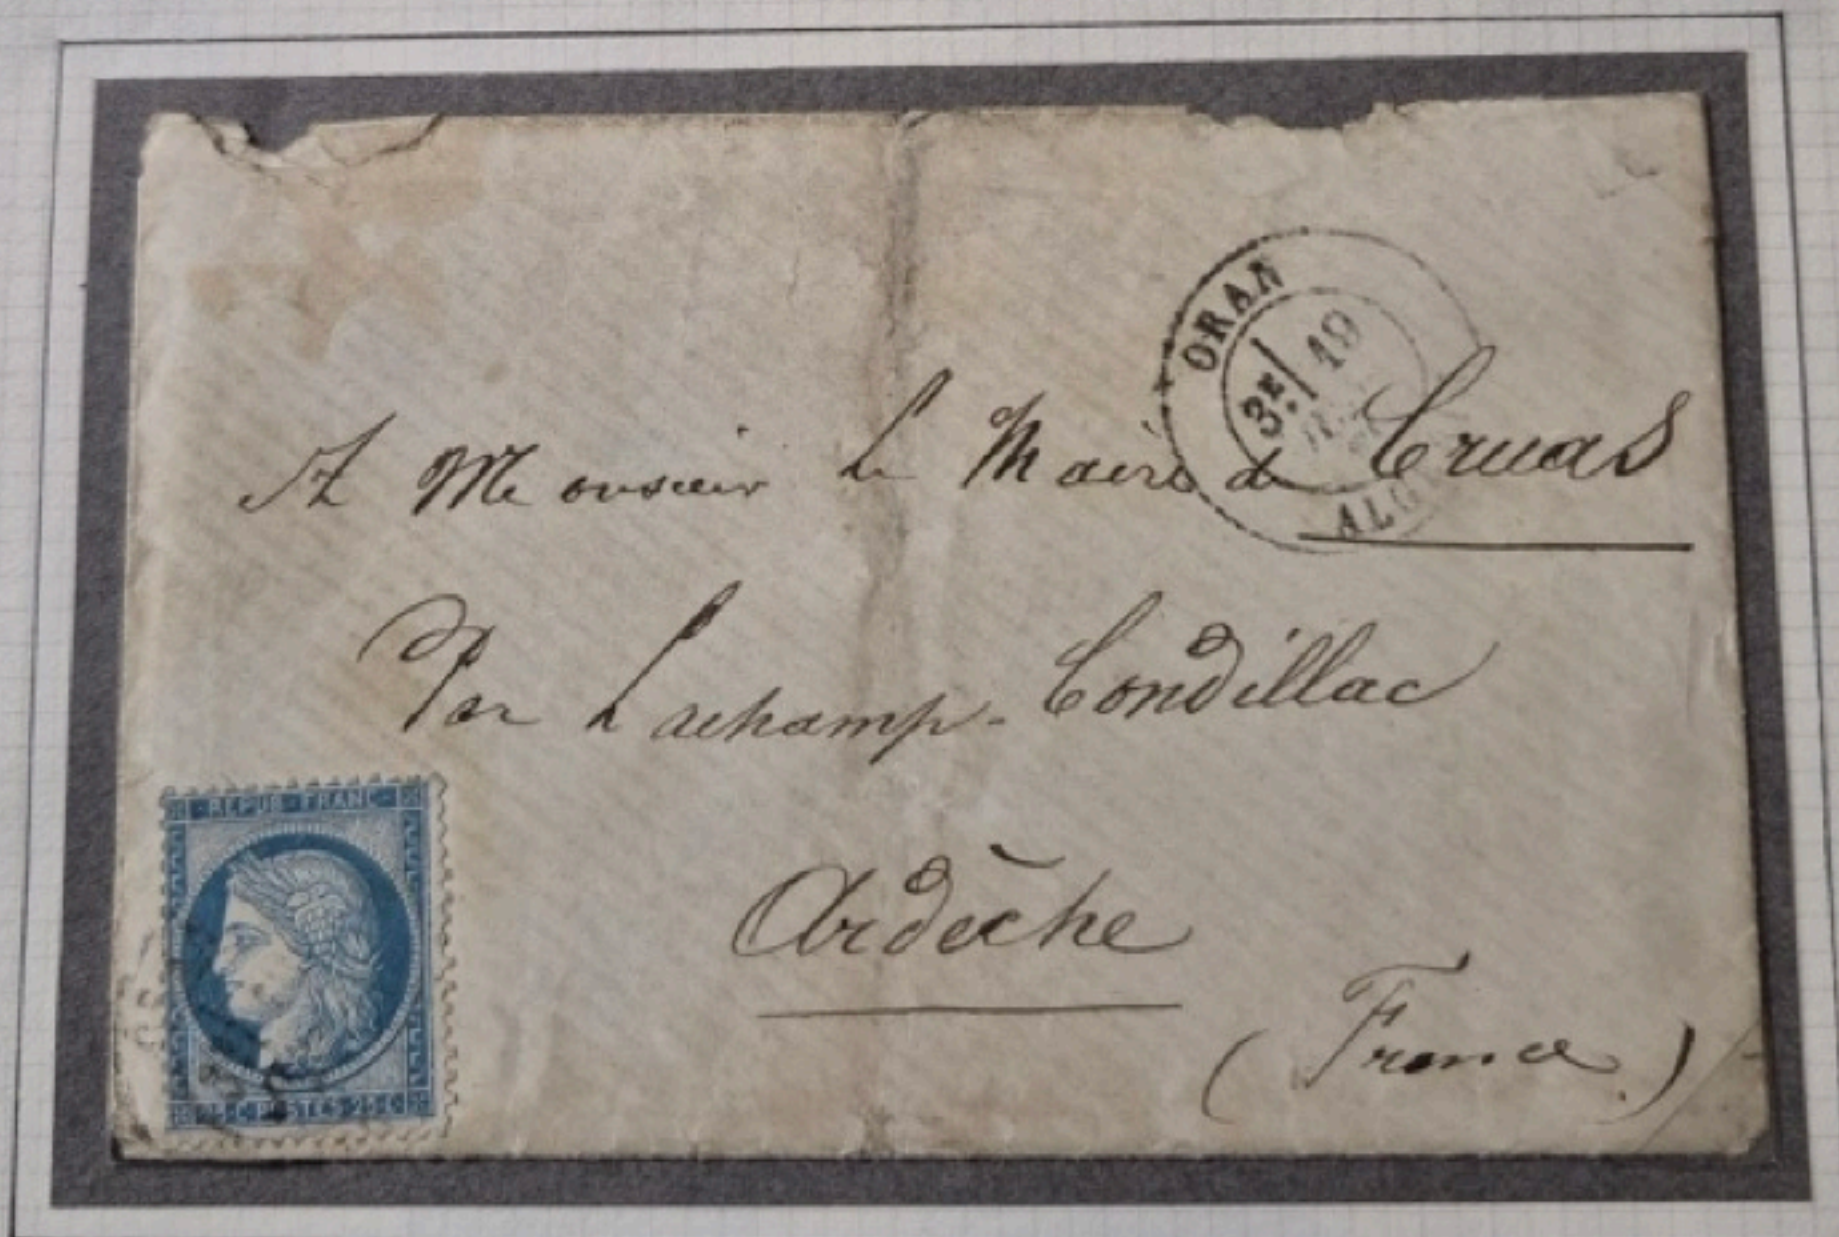 ORAN
3E 19
ALG
A Monsieur Le Maire de Cruas
Par Lachamp-Condillac
Ardèche
(France)
REPUB FRANC
25 C POSTES 25 C